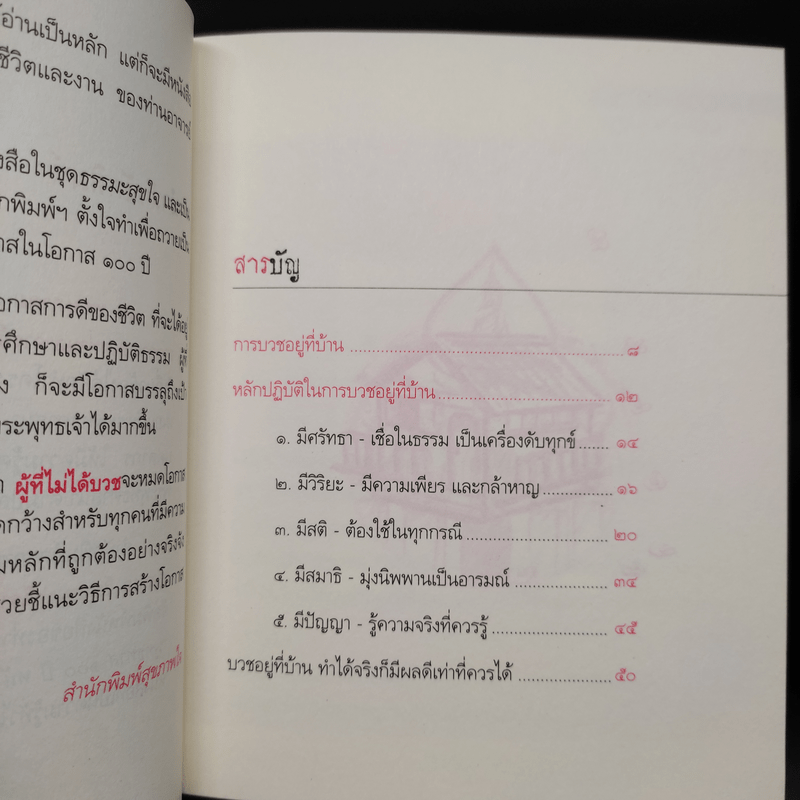 อ่านเป็นหลัก แต่ก็จะมีหนังสือ
ชีวิตและงาน ของท่านอาจารย์
สือในชุดธรรมะสุขใจ และเป็น
กพิมพ์ฯ ตั้งใจทำเพื่อถวายเป็น
าสในโอกาส ๑๐๐ ปี
อกาสการดีของชีวิต ที่จะได้อยู่
ศึกษาและปฏิบัติธรรม ผู้ที่
ก็จะมีโอกาสบรรลุถึงเป้า
ระพุทธเจ้าได้มากขึ้น
ผู้ที่ไม่ได้บวชจะหมดโอกาส
กว้างสำหรับทุกคนที่มีความ
มหลักที่ถูกต้องอย่างจริงจัง
วยชี้แนะวิธีการสร้างโอกาส
สำนักพิมพ์สุขภาพใจ
สารบัญ
การบวชอยู่ที่บ้าน ........ ๘
หลักปฏิบัติในการบวชอยู่ที่บ้าน ........ ๑๒
๑. มีศรัทธา - เชื่อในธรรม เป็นเครื่องดับทุกข์ ........ ๑๔
๒. มีวิริยะ - มีความเพียร และกล้าหาญ ........ ๑๖
๓. มีสติ - ต้องใช้ในทุกกรณี ........ ๒๐
๔. มีสมาธิ - มุ่งนิพพานเป็นอารมณ์ ........ ๓๔
๕. มีปัญญา - รู้ความจริงที่ควรรู้ ........ ๔๕
บวชอยู่ที่บ้าน ทำได้จริงก็มีผลดีเท่าที่ควรได้ ........ ๕๐